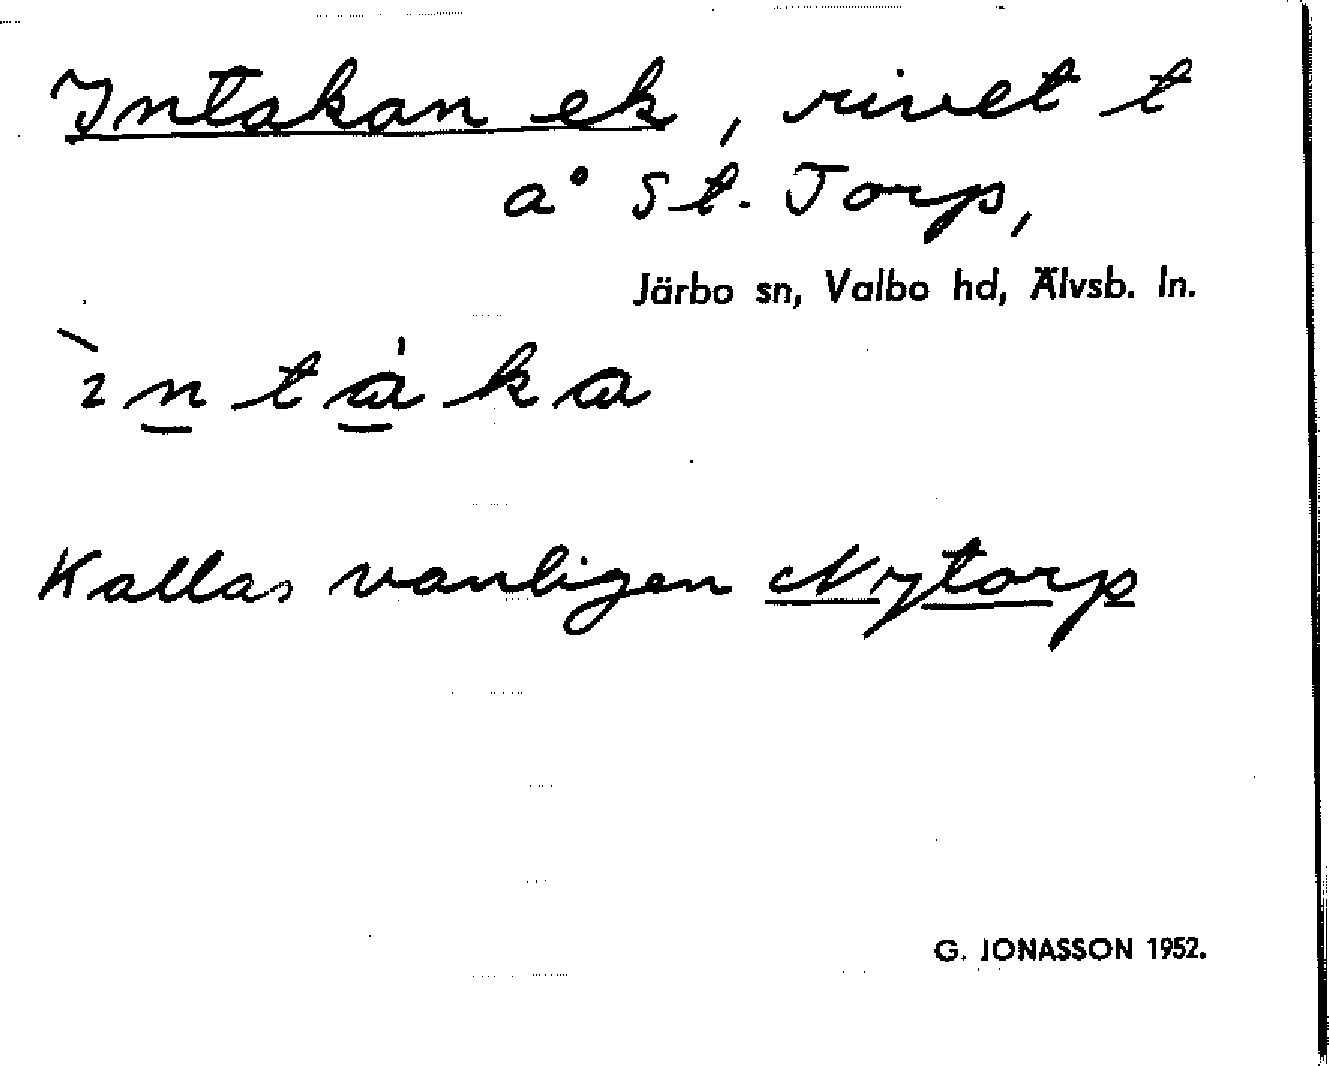 Intakan ek, rivet t
å St. Torp,
Järbo sn, Valbo hd, Älvsb. ln.
ìntáka
Kallas vanligen Nytorp
G. JONASSON 1952.